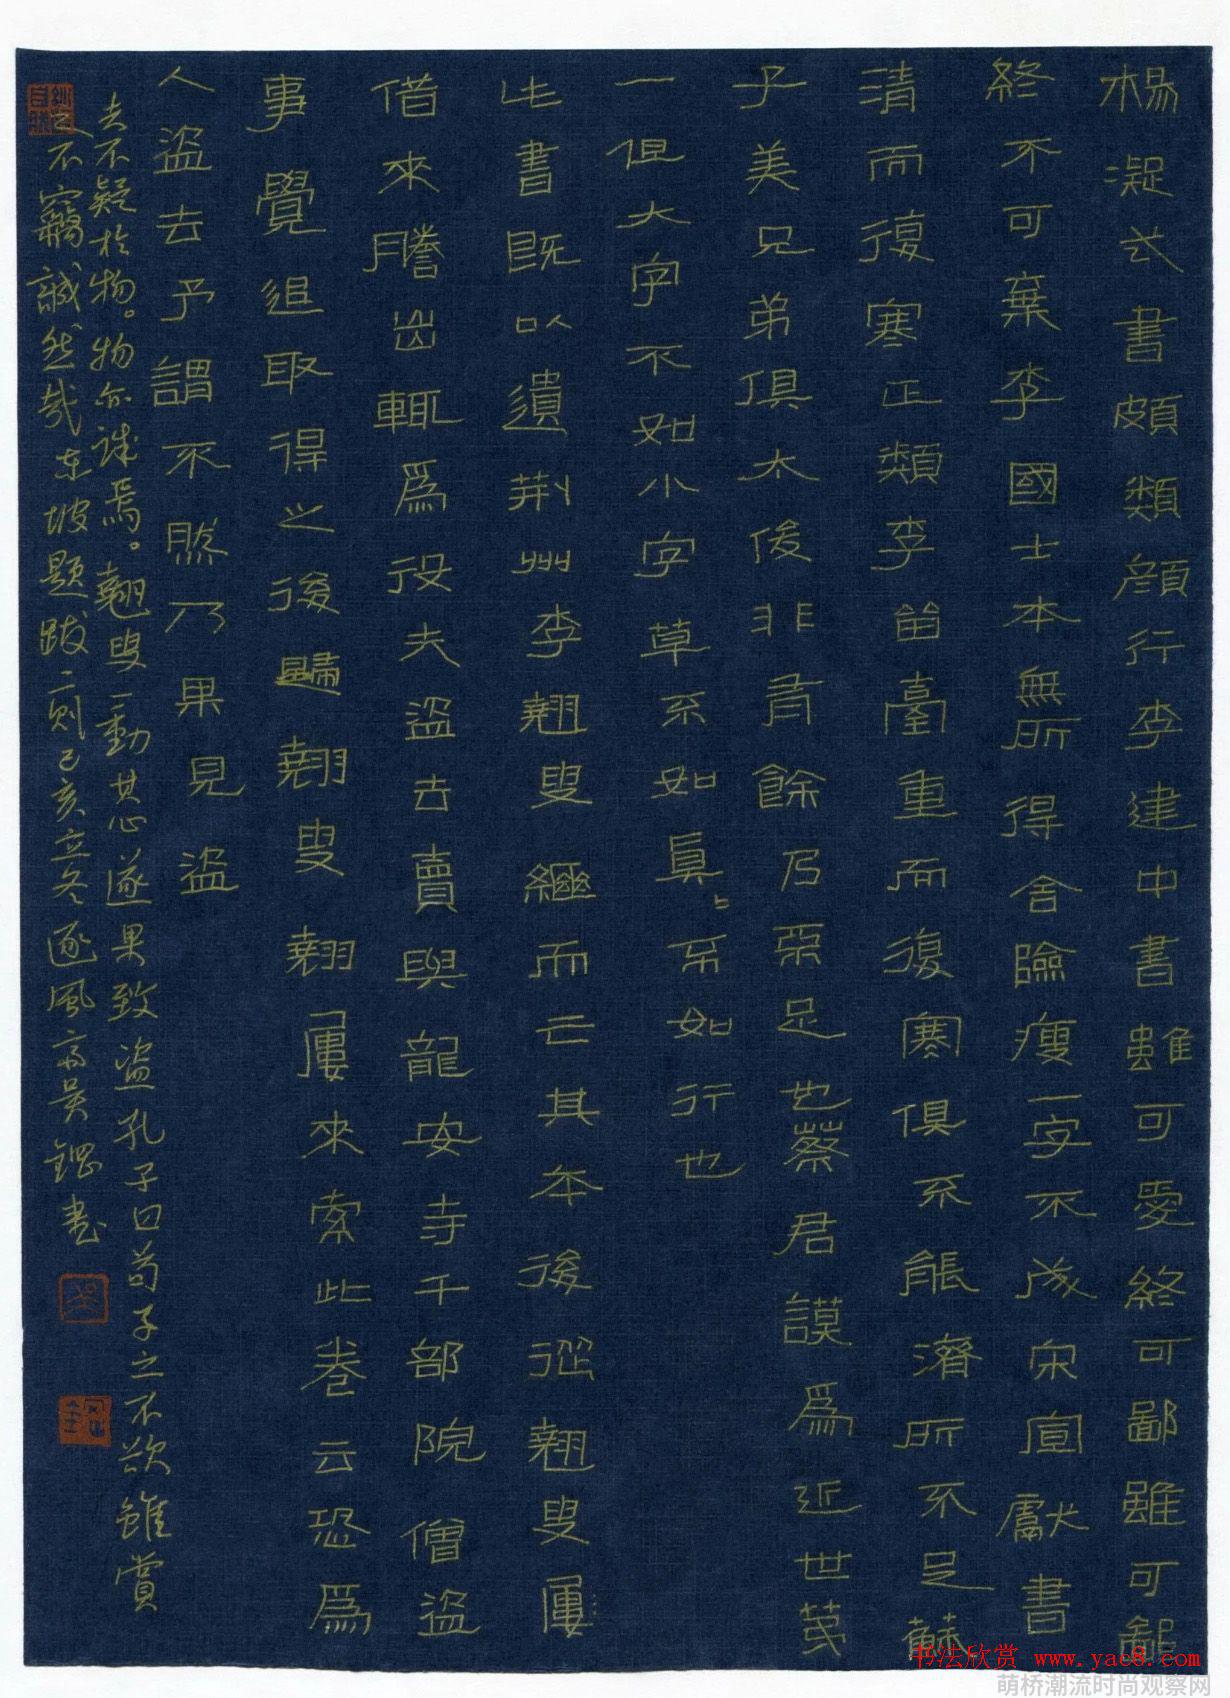 楊凝式書頗類顏行李建中書雖可愛終可鄙雖可鄙
終不可棄李國士本無所得舍險瘦一字不成宋宣獻書
清而復寒正類李留臺重而復寒俱不能濟所不足蘇
子美兄弟俱太俊非有餘乃不足也蔡君謨為近世第
一但大字不如小字草不如真真不如行也
此書既以遺荊州李翹叟繼而亡其本後從翹叟屢
借來謄出輒為役夫盜去賣與龍安寺千部院僧盜
事覺追取得之後歸翹叟翹屢來索此卷云恐為
人盜去予謂不然乃果見盜
去不疑於物。物亦誠焉。翹叟一動其心遂果致盜孔子曰苟子之不欲雖賞
之不竊誠然哉東坡題跋二則己亥立冬逐風斋吴鍶书
书法欣赏 www.yac8.com
萌桥潮流时尚观察网